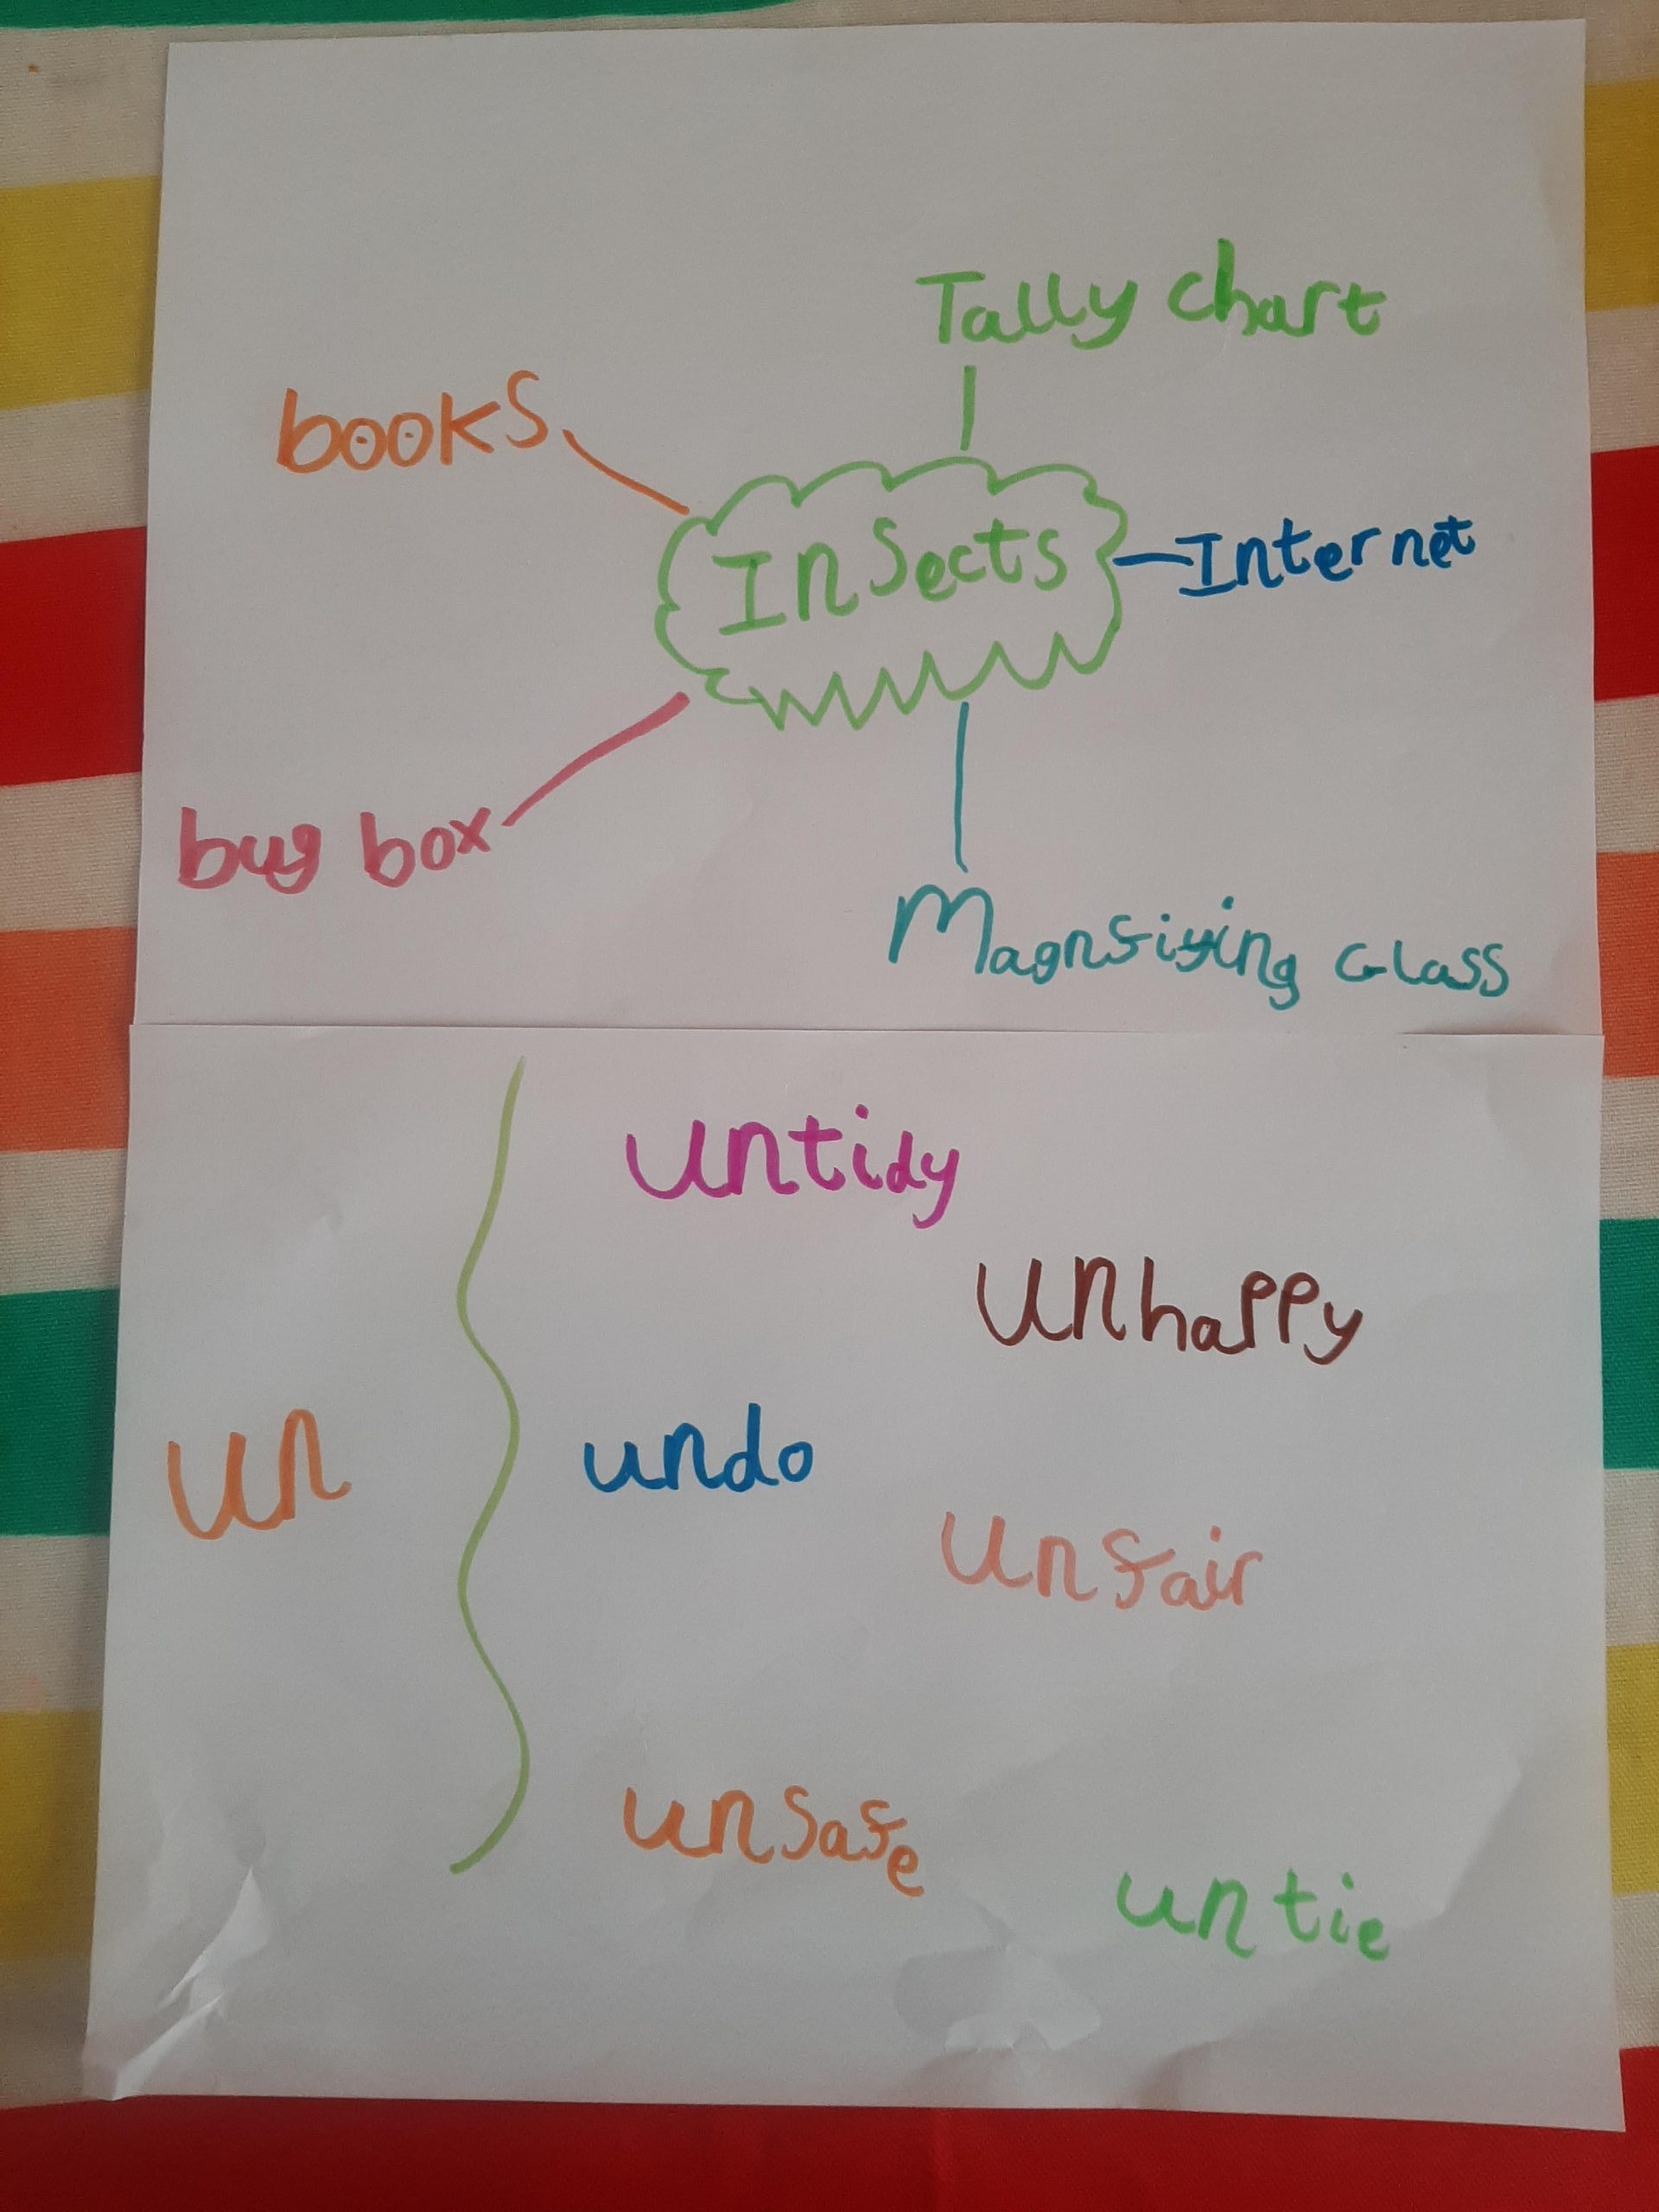 Tally chart
books
Insects
Internet
bug box
Magnfiying Glass
untidy
unhappy
un
undo
unfair
unsafe
untie